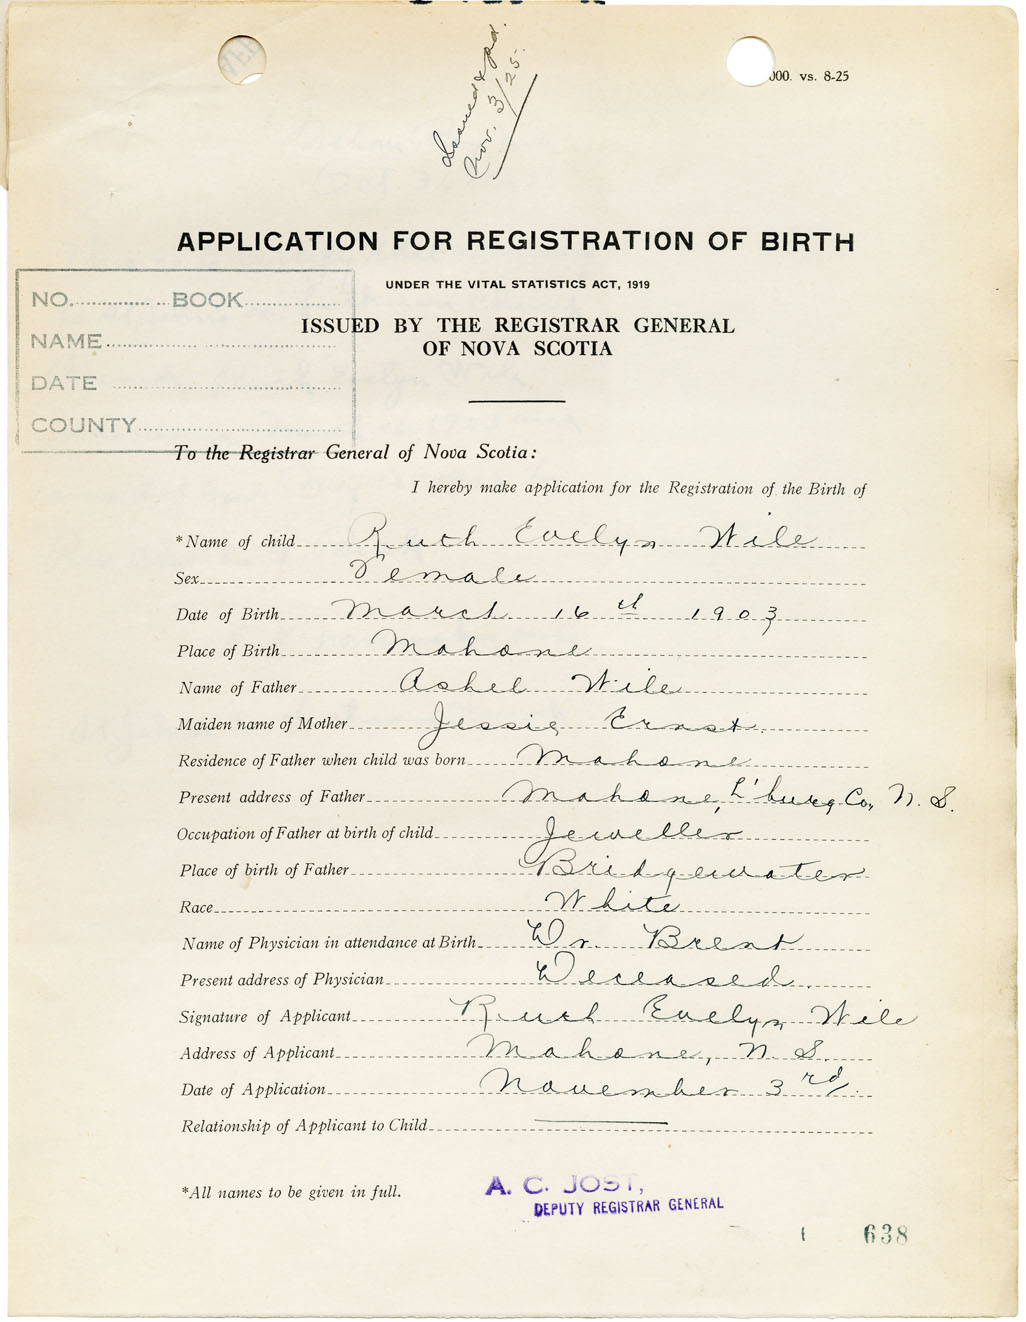 Issued & pd.
Nov. 3/25.
000. vs. 8-25
APPLICATION FOR REGISTRATION OF BIRTH
UNDER THE VITAL STATISTICS ACT, 1919
ISSUED BY THE REGISTRAR GENERAL
OF NOVA SCOTIA
NO. BOOK
NAME
DATE
COUNTY
To the Registrar General of Nova Scotia:
I hereby make application for the Registration of the Birth of
*Name of child Ruth Evelyn Wile
Sex Female
Date of Birth March 16th 1903
Place of Birth Mahone
Name of Father Ashel Wile
Maiden name of Mother Jessie Ernst.
Residence of Father when child was born Mahone
Present address of Father Mahone, L'burg Co, N. S.
Occupation of Father at birth of child Jeweller
Place of birth of Father Bridgewater
Race White
Name of Physician in attendance at Birth Dr. Brent
Present address of Physician Deceased.
Signature of Applicant Ruth Evelyn Wile
Address of Applicant Mahone, N. S.
Date of Application November 3rd.
Relationship of Applicant to Child
*All names to be given in full.
A. C. JOST,
DEPUTY REGISTRAR GENERAL
638